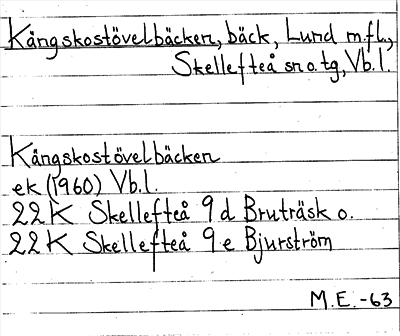 Kångskostövelbäcken, bäck, Lund m.fl.,
Skellefteå sn o. tg, Vb.l.
Kångskostövelbäcken
ek (1960) Vb.l.
22K Skellefteå 9d Bruträsk o.
22K Skellefteå 9e Bjurström
M.E.-63